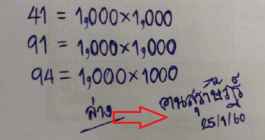 41 = 1,000×1,000
91 = 1,000×1,000
94 = 1,000×1000
ล่าง
คนสุราษฎร์
25/1/60